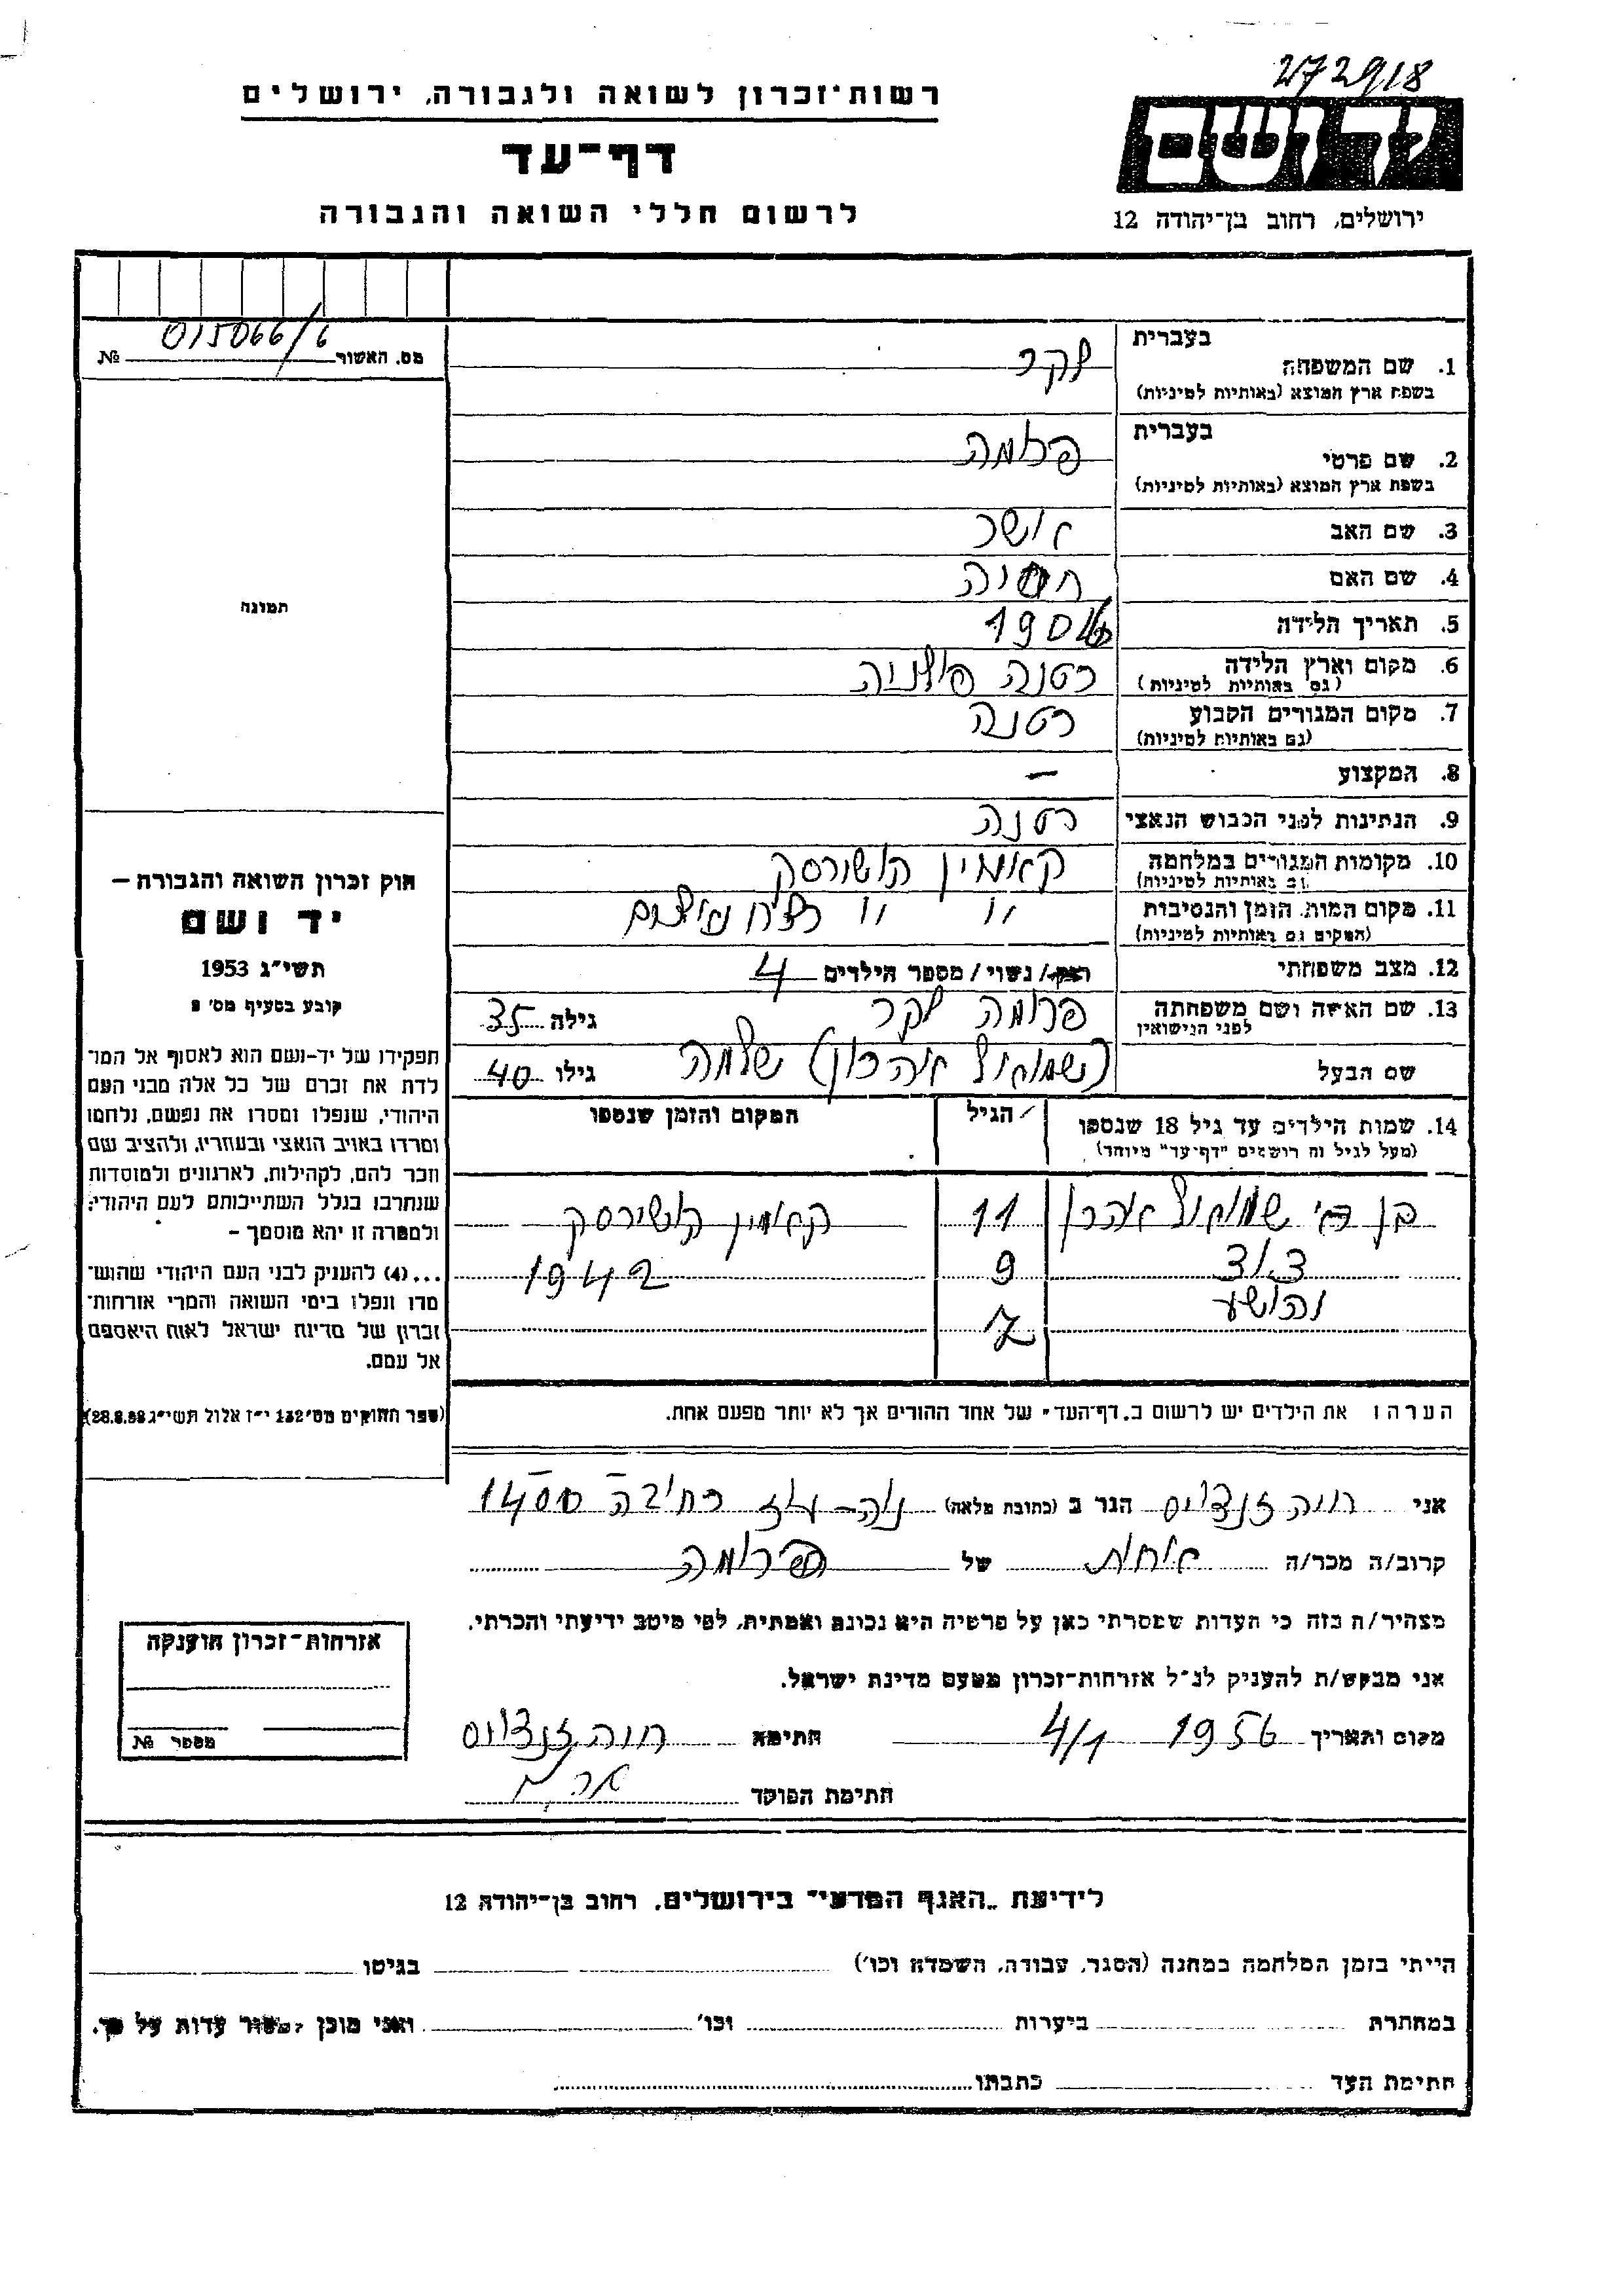 272918
רשות-זכרון לשואה ולגבורה, ירושלים
יד ושם
דף-עד
לרשום חללי השואה והגבורה
ירושלים, רחוב בן-יהודה 12
מס. האשור № 015066/6
בעברית
1. שם המשפחה לקר
בשפת ארץ המוצא (באותיות לטיניות)
בעברית
2. שם פרטי פרומה
בשפת ארץ המוצא (באותיות לטיניות)
3. שם האב אושר
4. שם האם חסיה
5. תאריך הלידה 1904
6. מקום וארץ הלידה רטנה פולניה
(גם באותיות לטיניות)
7. מקום המגורים הקבוע רטנה
(גם באותיות לטיניות)
8. המקצוע —
9. הנתינות לפני הכבוש הנאצי רטנה
10. מקומות המגורים במלחמה קאמין קושירסק
(גם באותיות לטיניות)
11. מקום המות, הזמן והנסיבות " "
(המקום גם באותיות לטיניות)
12. מצב משפחתי רווק/ נשוי/ מספר הילדים 4
13. שם האשה ושם משפחתה פרומה לקר גילה 35
לפני הנישואין
שם הבעל שלמה גילו 40
14. שמות הילדים עד גיל 18 שנספו הגיל המקום והזמן שנספו
(מעל לגיל זה רושמים "דף-עד" מיוחד)
11 קאמין קושירסק
9 1942
והושע
7
הערה: את הילדים יש לרשום ב"דף-העד" של אחד ההורים אך לא יותר מפעם אחת.
תמונה
חוק זכרון השואה והגבורה –
יד ושם
תשי"ג 1953
קובע בסעיף מס' 2
תפקידו של יד-ושם הוא לאסוף אל המו-
לדת את זכרם של כל אלה מבני העם
היהודי, שנפלו ומסרו את נפשם, נלחמו
ומרדו באויב הנאצי ובעוזריו, ולהציב שם
וזכר להם, לקהילות, לארגונים ולמוסדות
שנחרבו בגלל השתייכותם לעם היהודי;
ולמטרה זו יהא מוסמך –
...(4) להעניק לבני העם היהודי שהוש-
מדו ונפלו בימי השואה והמרי אזרחות-
זכרון של מדינת ישראל לאות היאספם
אל עמם.
(ספר החוקים מס' 132 י"ז אלול תשי"ג 28.8.53)
אני חוה הגר ב (כתובת מלאה)
קרוב/ה מכר/ה אחות של פרומה
מצהיר/ה בזה כי העדות שמסרתי כאן על פרטיה היא נכונה ואמתית, לפי מיטב ידיעתי והכרתי.
אני מבקש/ת להעניק לנ"ל אזרחות-זכרון מטעם מדינת ישראל.
מקום ותאריך 1956 4/1 חתימה חוה
חתימת הפוקד
אזרחות-זכרון הוענקה
מספר №
לידיעת "האגף המדעי" בירושלים, רחוב בן-יהודה 12
הייתי בזמן המלחמה במחנה (הסגר, עבודה, השמדה וכו') בגיטו
במחתרת ביערות וכו' ואני מוכן למסור עדות על כך.
חתימת העד כתבתו